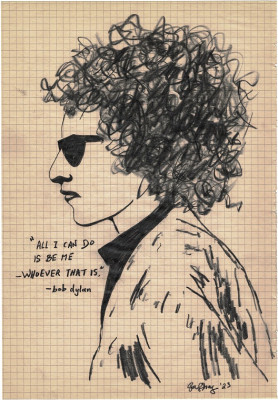 "ALL I CAN DO
IS BE ME
-WHOEVER THAT IS."
-bob dylan
'23